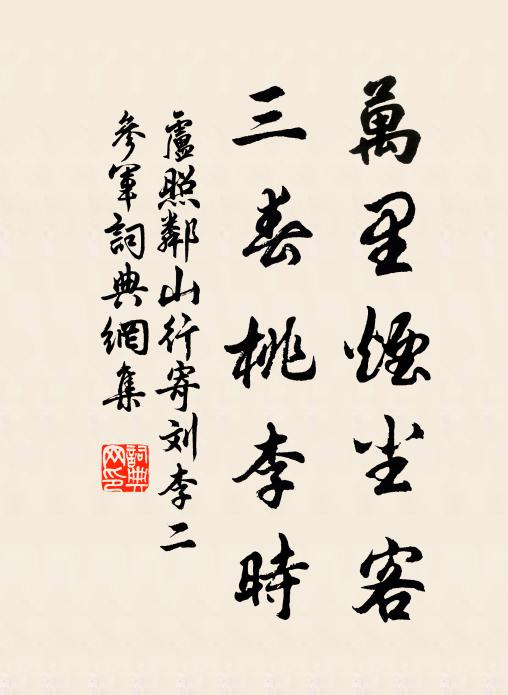 萬里煙尘客
三春桃李時
盧照鄰山行寄刘李二
參軍詞典網集
詞典网印